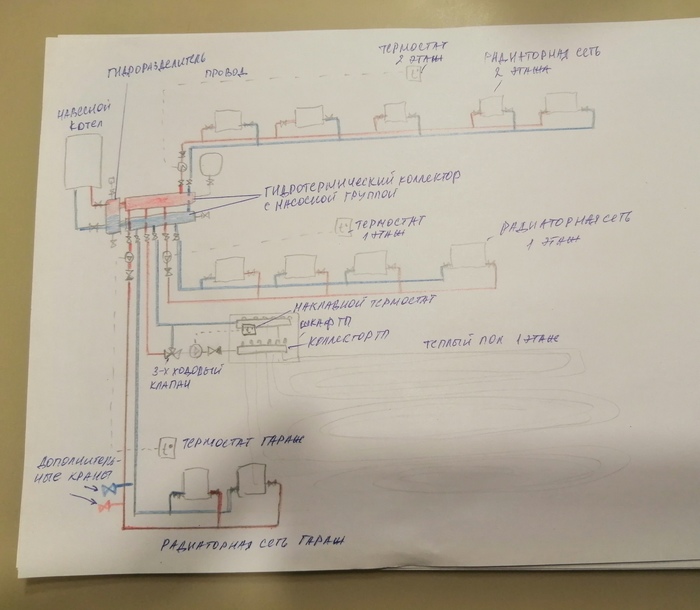 ГИДРОРАЗДЕЛИТЕЛЬ
ПРОВОД
ТЕРМОСТАТ
2 ЭТАЖ
РАДИАТОРНАЯ СЕТЬ
2 ЭТАЖА
НАВЕСНОЙ
КОТЕЛ
ГИДРОТЕРМИЧЕСКИЙ КОЛЛЕКТОР
С НАСОСНОЙ ГРУППОЙ
t°
ТЕРМОСТАТ
1 ЭТАЖ
РАДИАТОРНАЯ СЕТЬ
1 ЭТАЖ
НАКЛАДНОЙ ТЕРМОСТАТ
ШКАФ ТП
КОЛЛЕКТОР ТП
ТЕПЛЫЙ ПОЛ 1 ЭТАЖ
3-Х ХОДОВЫЙ
КЛАПАН
t°
ТЕРМОСТАТ ГАРАЖ
ДОПОЛНИТЕЛЬ-
НЫЕ КРАНЫ
РАДИАТОРНАЯ СЕТЬ ГАРАЖ